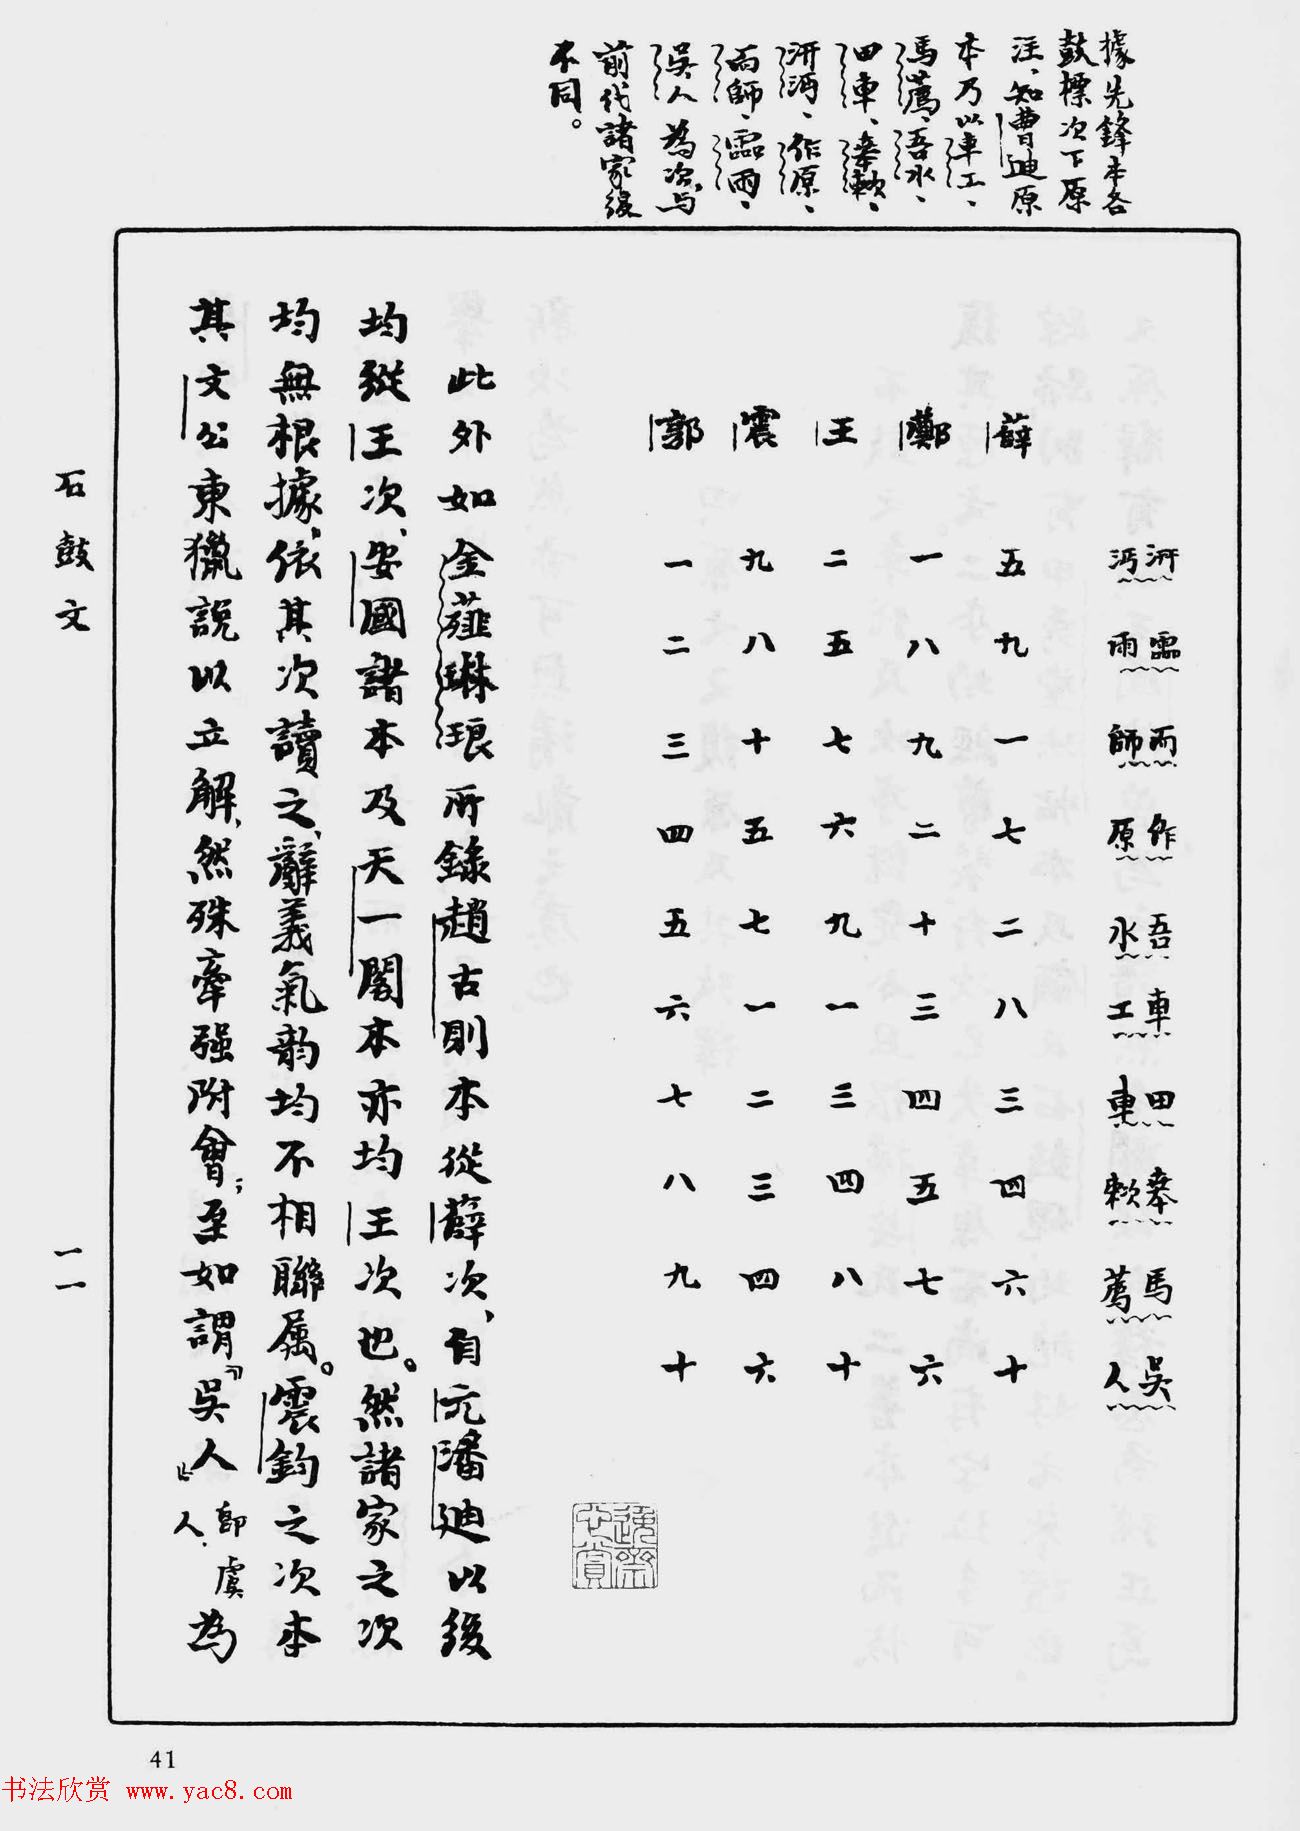 據先鋒本各
鼓標次下原
注、知曹迪原
本乃以車工、
馬薦、吾水、
田車、𡘲敕、
汧沔、作原、
而師、霝雨、
吳人爲次、與
前代諸家俱
不同。
汧沔 霝雨 而師 作原 吾水 車工 田車 𡘲敕 馬薦 吳人
薛 五 九 一 七 二 八 三 四 六 十
鄭 一 八 九 二 十 三 四 五 七 六
王 二 五 七 六 九 一 三 四 八 十
震 九 八 十 五 七 一 二 三 四 六
郭 一 二 三 四 五 六 七 八 九 十
此外如金薤琳琅所錄趙古則本從薛次、自元潘迪以後
均從王次、安國諸本及天一閣本亦均王次也。然諸家之次
均無根據、依其次讀之、辭義氣韵均不相聯属。震鈞之次本
其文公東獵說以立解、然殊牽强附會；至如謂「吳人」卽虞人、為
石鼓文
一一
41
书法欣赏 www.yac8.com